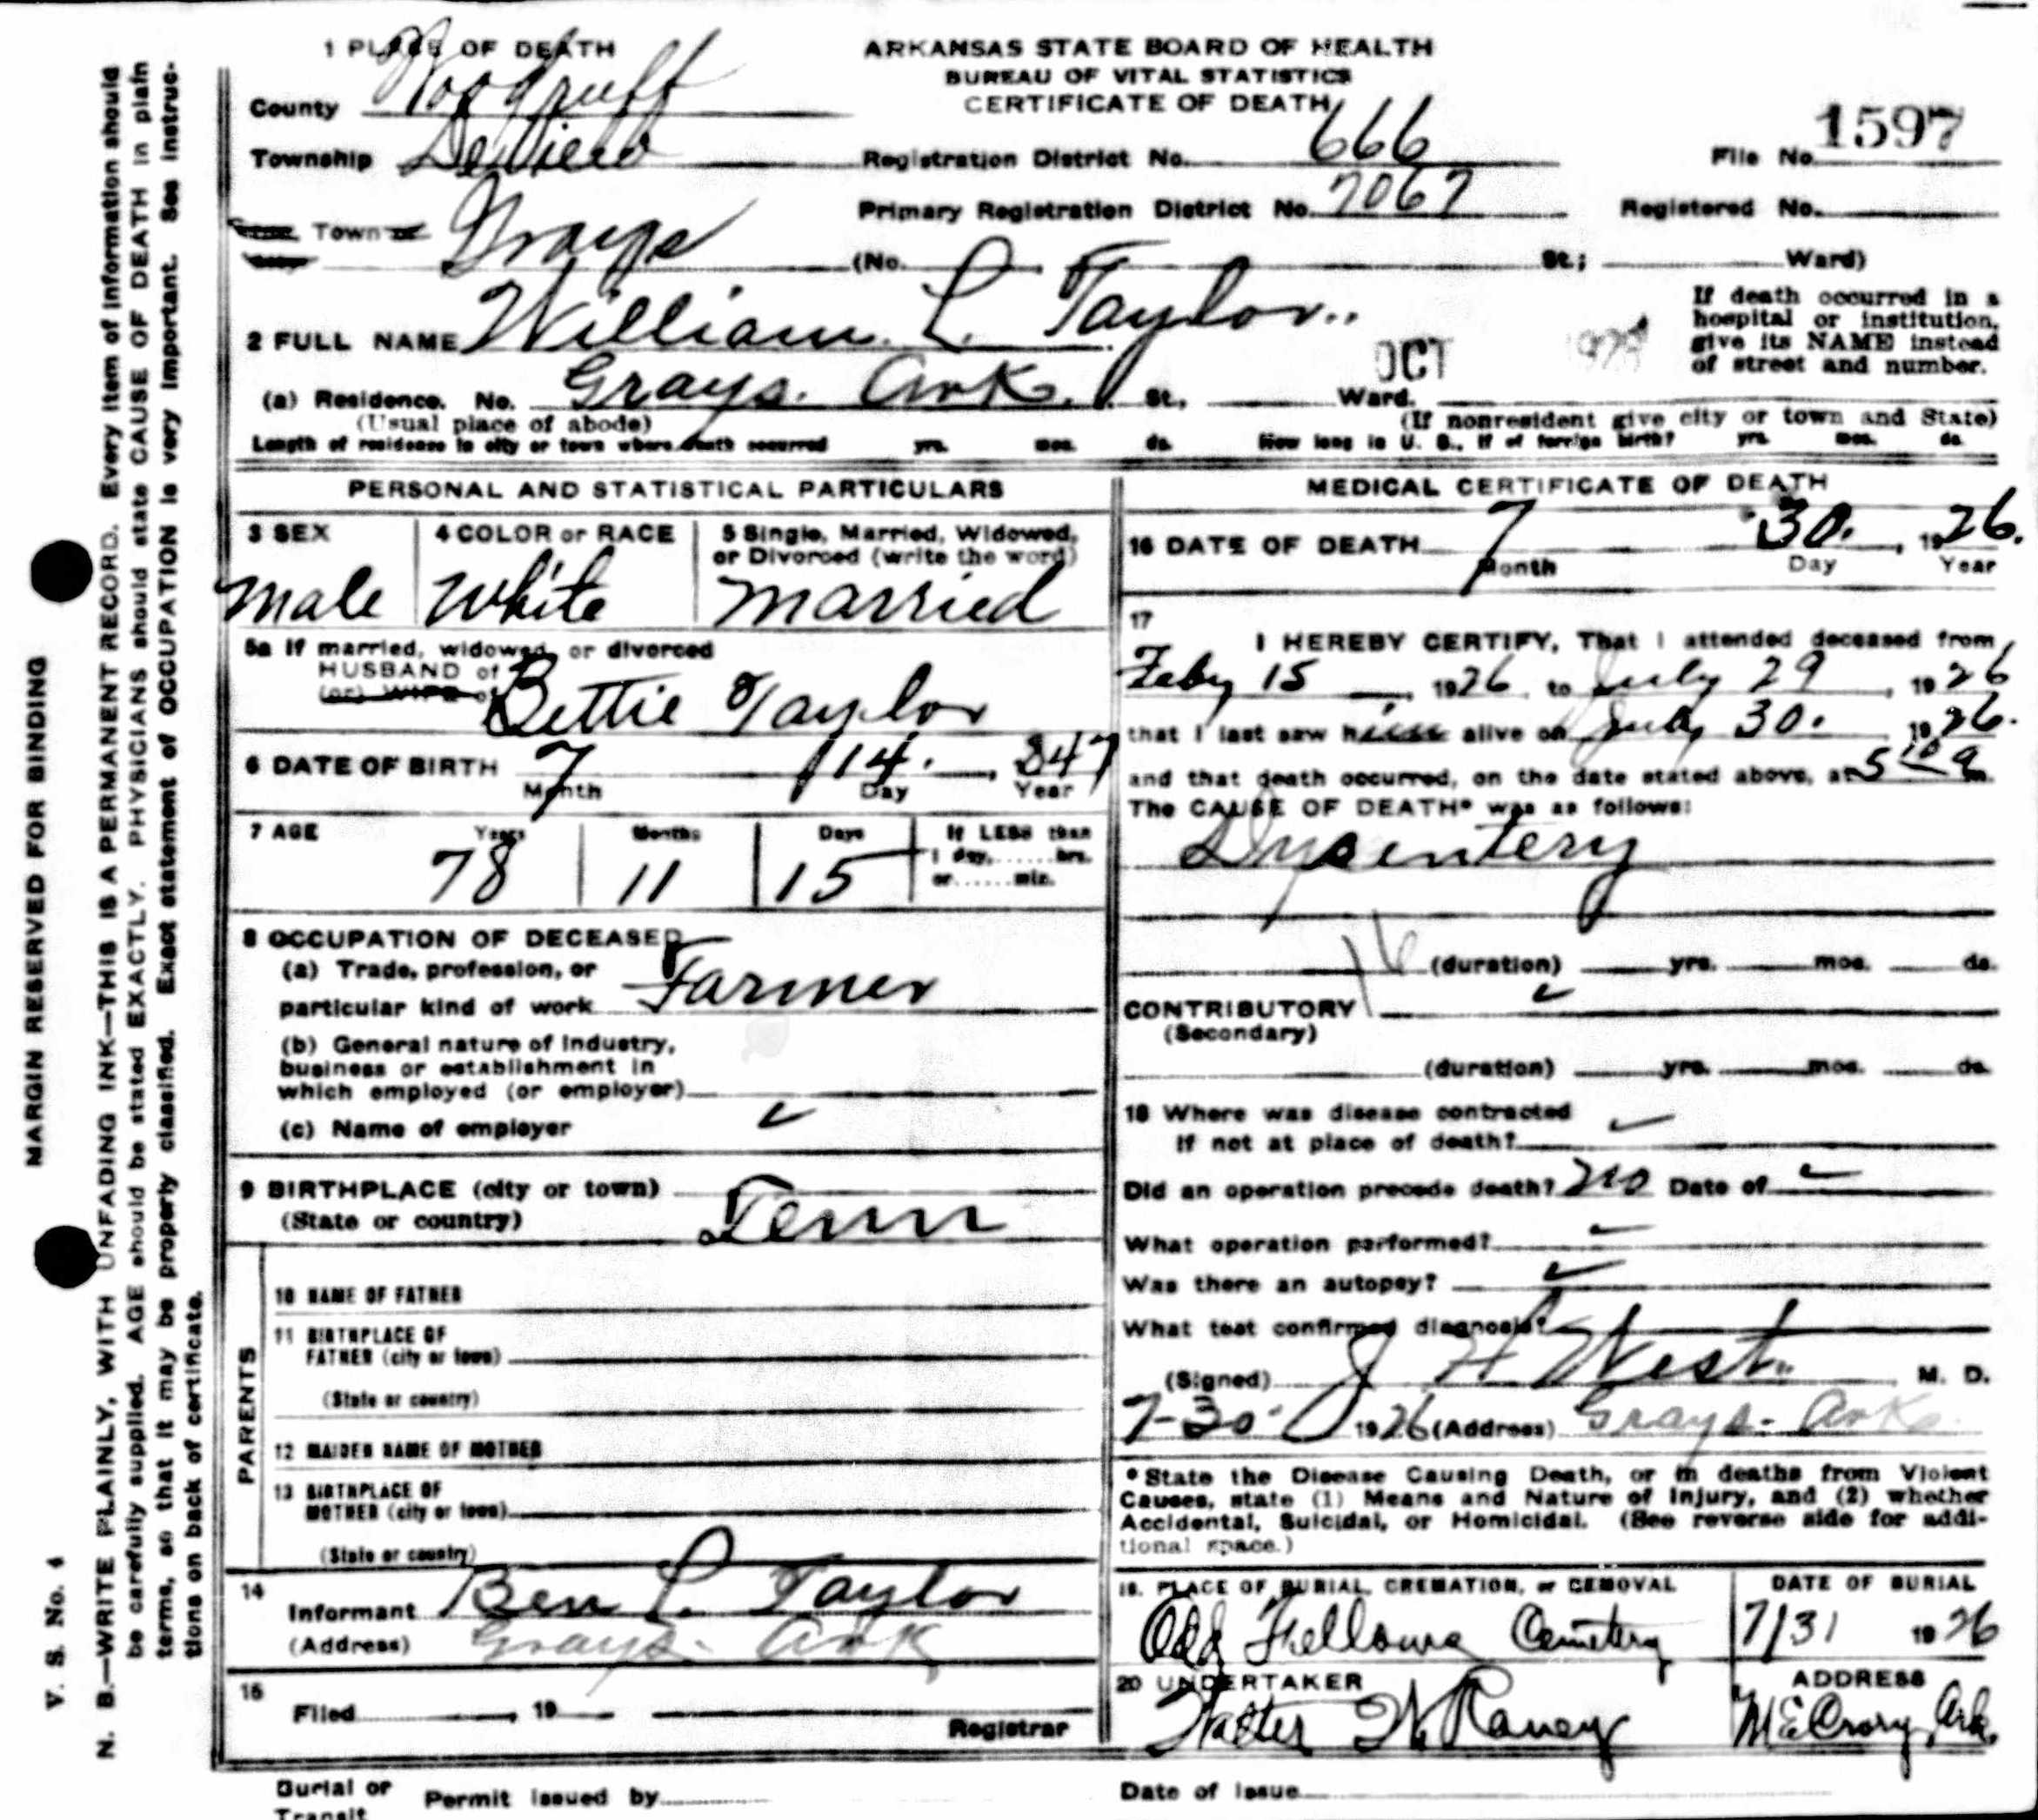 1 PLACE OF DEATH
County Woodruff
Township DeView
Town or Grays
ARKANSAS STATE BOARD OF HEALTH
BUREAU OF VITAL STATISTICS
CERTIFICATE OF DEATH
Registration District No. 666
File No. 1597
Primary Registration District No. 7067
Registered No.
(No. St.; Ward)
2 FULL NAME William L. Taylor
If death occurred in a
hospital or institution,
give its NAME instead
of street and number.
OCT
(a) Residence. No. Grays. Ark. St., Ward.
(Usual place of abode)
(If nonresident give city or town and State)
Length of residence in city or town where death occurred yrs. mos. ds. How long in U. S., if of foreign birth? yrs. mos. ds.
PERSONAL AND STATISTICAL PARTICULARS
3 SEX
male
4 COLOR or RACE
White
5 Single, Married, Widowed,
or Divorced (write the word)
married
5a If married, widowed, or divorced
HUSBAND of
(or) WIFE of
Bettie Taylor
6 DATE OF BIRTH 7 14. , 847
Month Day Year
7 AGE
Years Months Days
78 11 15
If LESS than
1 day,......hrs.
or......min.
8 OCCUPATION OF DECEASED
(a) Trade, profession, or
particular kind of work Farmer
(b) General nature of industry,
business or establishment in
which employed (or employer)
(c) Name of employer
9 BIRTHPLACE (city or town)
(State or country) Tenn
PARENTS
10 NAME OF FATHER
11 BIRTHPLACE OF
FATHER (city or town)
(State or country)
12 MAIDEN NAME OF MOTHER
13 BIRTHPLACE OF
MOTHER (city or town)
(State or country)
14
Informant Ben L. Taylor
(Address) Grays. Ark
15
Filed , 19
Registrar
MEDICAL CERTIFICATE OF DEATH
16 DATE OF DEATH 7 30. , 1926.
Month Day Year
17
I HEREBY CERTIFY, That I attended deceased from
Feby 15 , 1926, to July 29 , 1926
that I last saw him alive on July 30. 1926.
and that death occurred, on the date stated above, at 5 10 a m.
The CAUSE OF DEATH* was as follows:
Dysentery
16 (duration) yrs. mos. ds.
CONTRIBUTORY
(Secondary)
(duration) yrs. mos. ds.
18 Where was disease contracted
if not at place of death?
Did an operation precede death? no Date of
What operation performed?
Was there an autopsy?
What test confirmed diagnosis?
(Signed) J H West M. D.
7-30- 1926 (Address) Grays- Ark
*State the Disease Causing Death, or in deaths from Violent
Causes, state (1) Means and Nature of Injury, and (2) whether
Accidental, Suicidal, or Homicidal. (See reverse side for addi-
tional space.)
19. PLACE OF BURIAL, CREMATION, or REMOVAL
Odd Fellows Cemetery
DATE OF BURIAL
7/31 1926
20 UNDERTAKER
Walter W Raney
ADDRESS
McCrory, Ark.
Burial or
Transit
Permit issued by
Date of Issue
MARGIN RESERVED FOR BINDING
V. S. No. 4
N. B.—WRITE PLAINLY, WITH UNFADING INK—THIS IS A PERMANENT RECORD. Every item of information should
be carefully supplied. AGE should be stated EXACTLY. PHYSICIANS should state CAUSE OF DEATH in plain
terms, so that it may be properly classified. Exact statement of OCCUPATION is very important. See instruc-
tions on back of certificate.